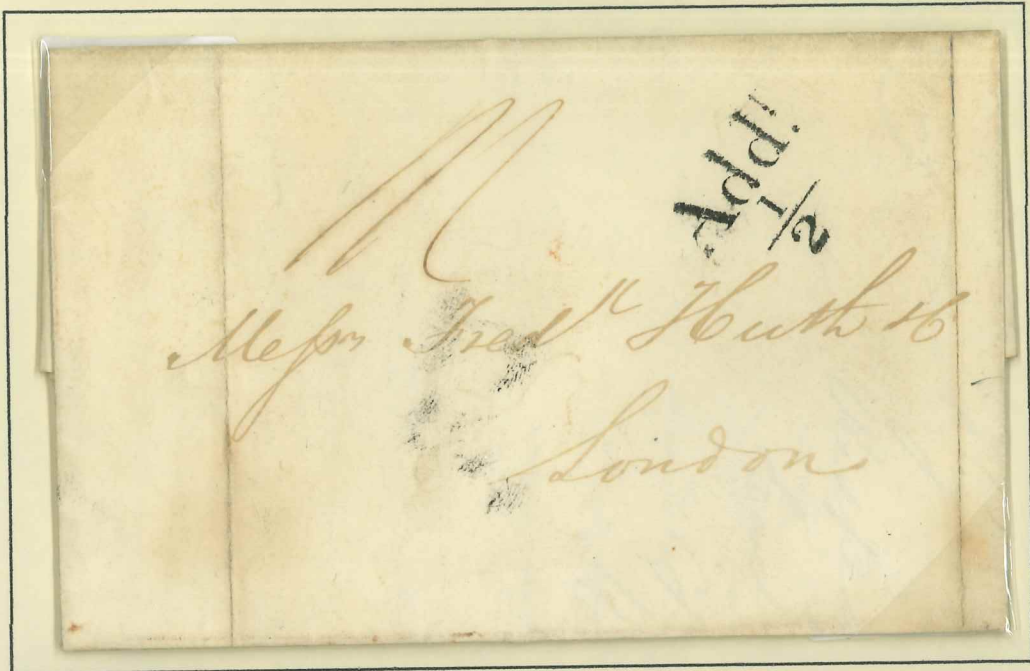 Addl. 1/2
11
Messrs Fredk Huth & Co
London